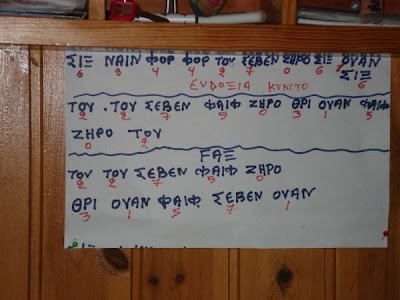 ΣΙΞ ΝΑΙΝ ΦΟΡ ΦΟΡ ΤΟΥ ΣΕΒΕΝ ΖΗΡΟ ΣΙΞ ΟΥΑΝ
6 9 4 4 2 7 0 6 1
ΣΙΞ
6
ΕΥΔΟΞΙΑ ΚΙΝΙΤΟ
ΤΟΥ . ΤΟΥ ΣΕΒΕΝ ΦΑΙΦ ΖΗΡΟ ΘΡΙ ΟΥΑΝ ΦΑΙΦ
2 2 7 5 0 3 1 5
ΖΗΡΟ ΤΟΥ
0 2
FAΞ
ΤΟΥ ΤΟΥ ΣΕΒΕΝ ΦΑΙΦ ΖΗΡΟ
2 2 7 5 0
ΘΡΙ ΟΥΑΝ ΦΑΙΦ ΣΕΒΕΝ ΟΥΑΝ
3 1 5 7 1